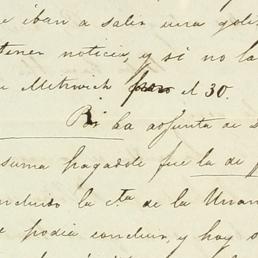 e iban a salir una gole
tener noticia, y si no la
e Methwich para el 30.
Ri ha adjunta de s
suma pagadole fue la de p
ncluido la c.ta de la Unan
e podia concluir, y hoy s